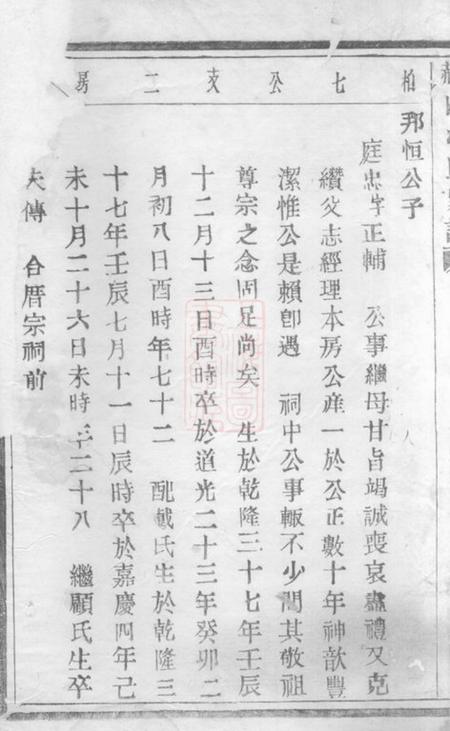 柏七公支二房
邦恒公子
庭忠字正輔　公事繼母甘旨竭誠喪哀盡禮又克
纘父志經理本房公產一於公正數十年神歆豐
潔惟公是賴卽遇　祠中公事輙不少閒其敬祖
尊宗之念固足尚矣　生於乾隆三十七年壬辰
十二月十三日酉時卒於道光二十三年癸卯二
月初八日酉時年七十二　配戴氏生於乾隆三
十七年壬辰七月十一日辰時卒於嘉慶四年己
未十月二十六日未時年二十八　繼顧氏生卒
失傳　合厝宗祠前